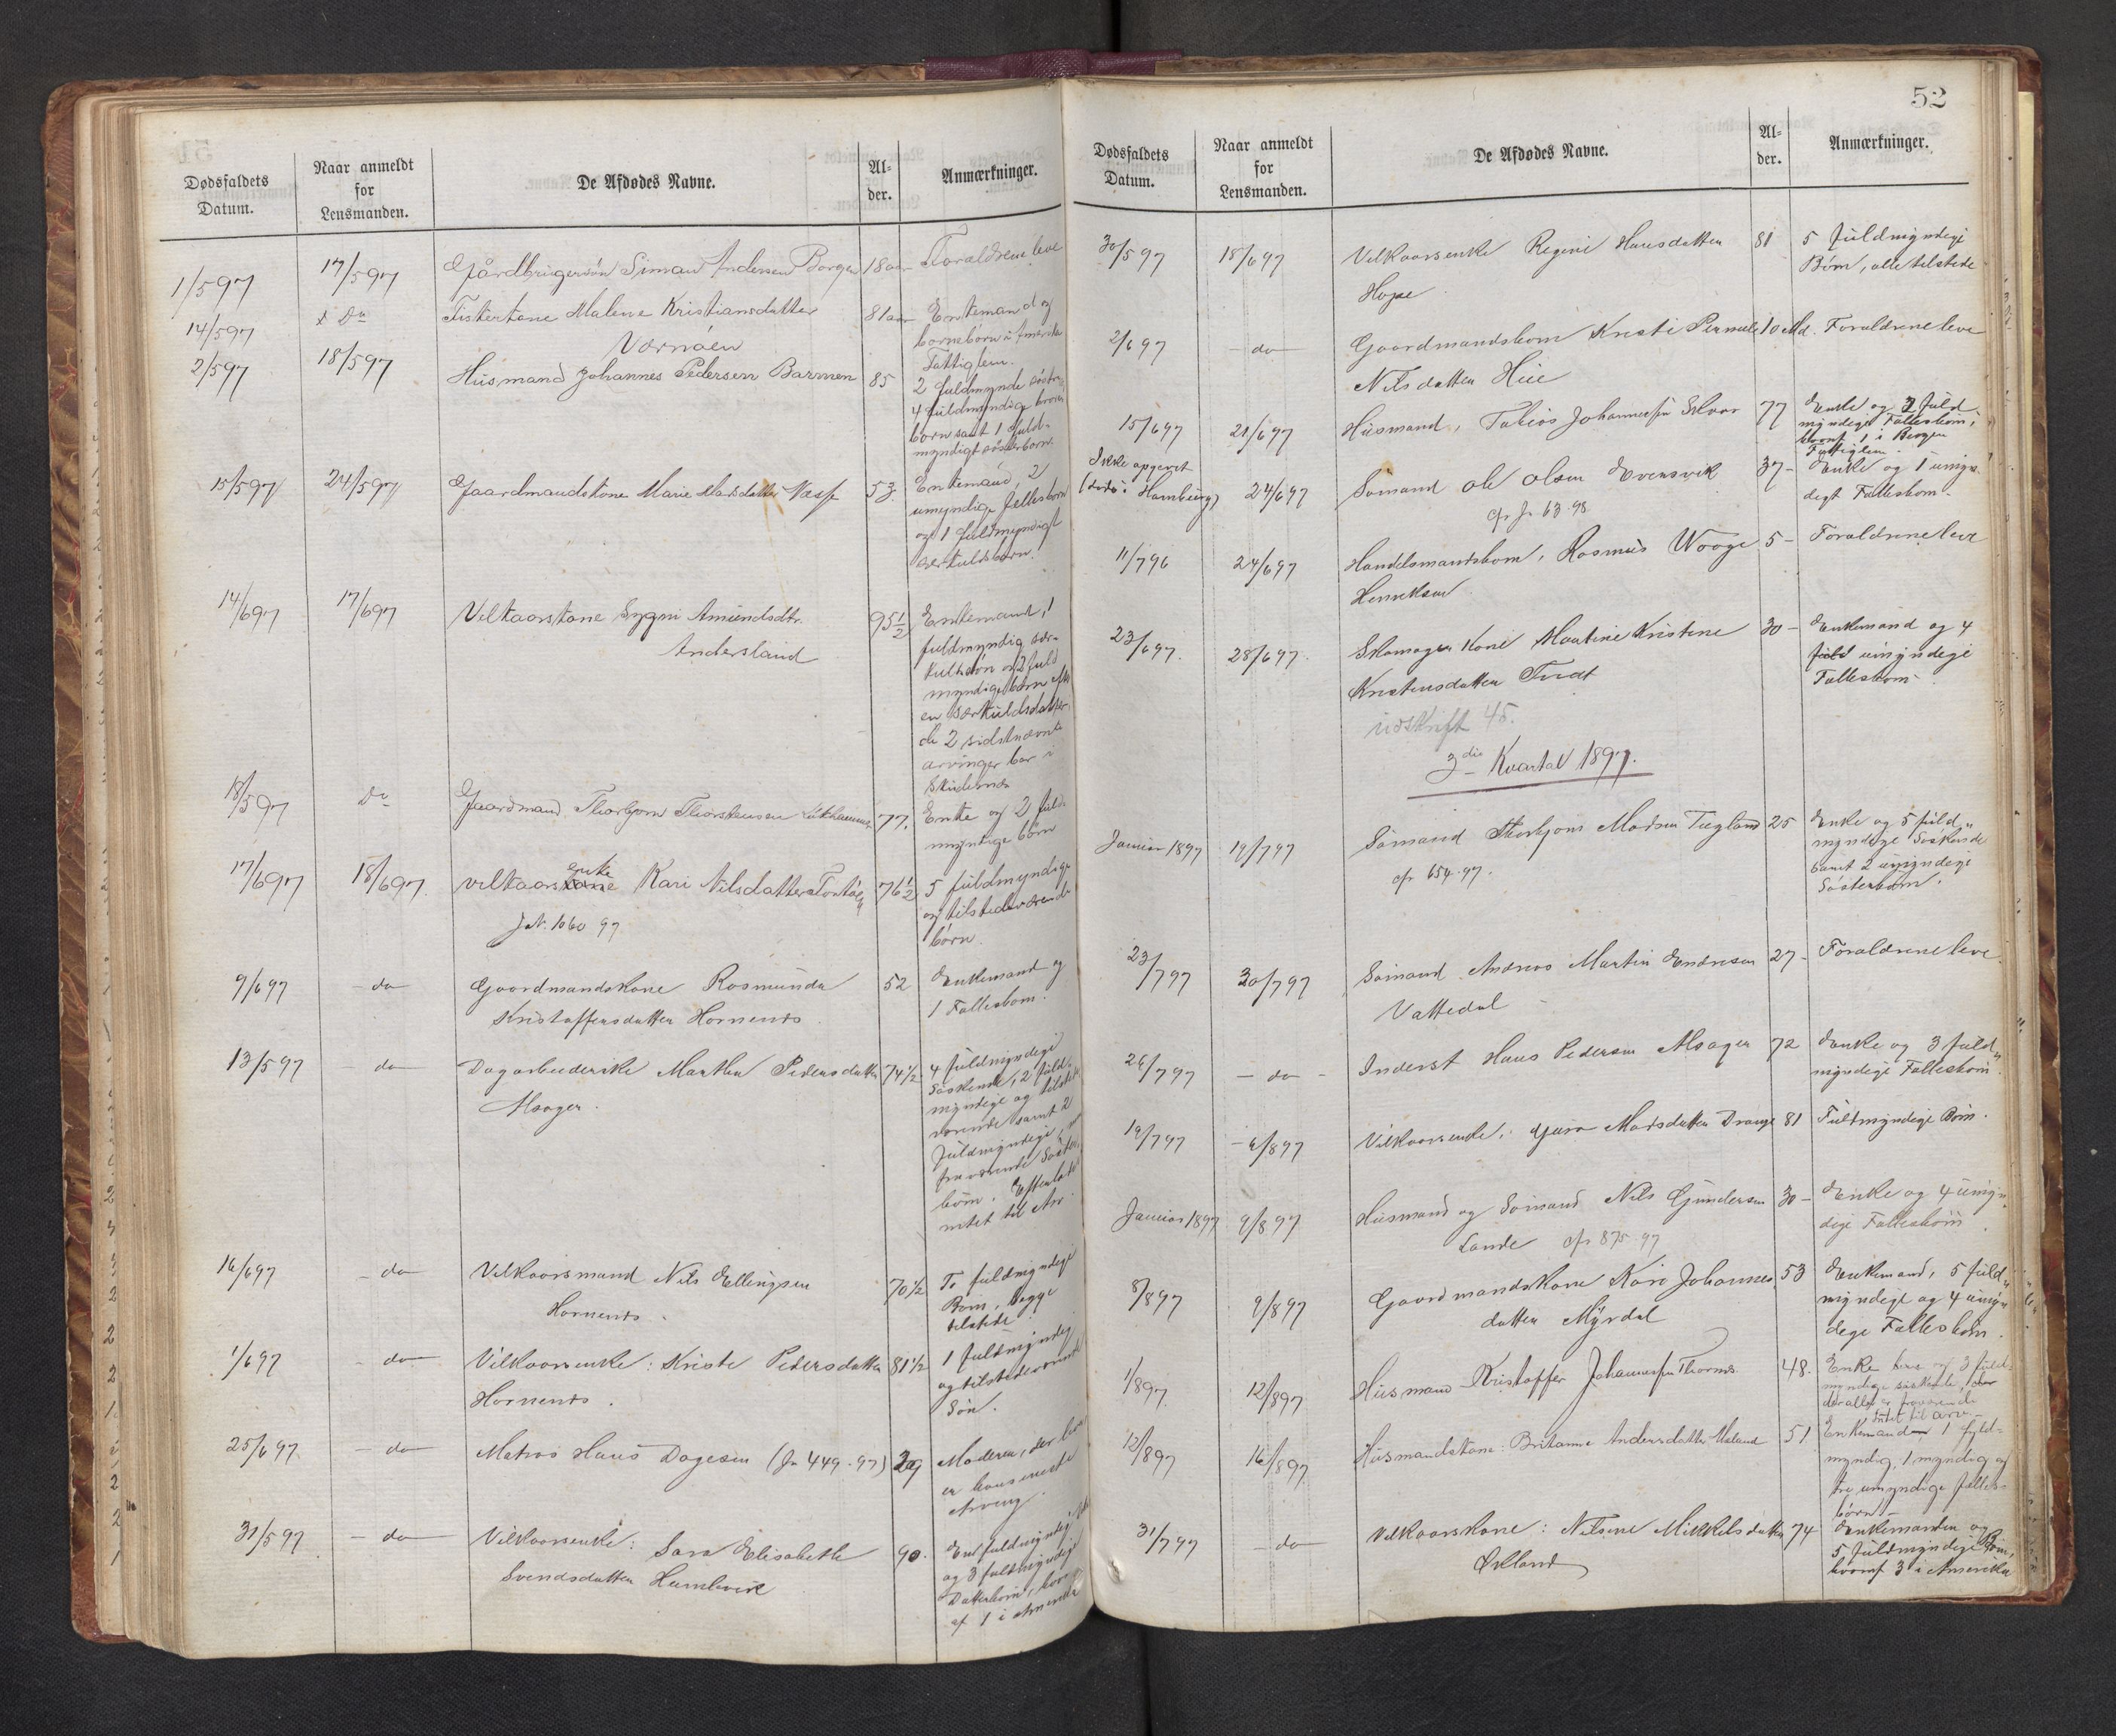 Dødsfaldets Datum.
Naar anmeldt for Lensmanden.
De Afdødes Navne.
Al-der.
Anmærkninger.
1/5 97 17/5 97 Gårdbrugersøn Simon Andersen Borgen 18 aar Forældrene leve
14/5 97 Do Fisterkone Malene Kristiansdatter 81 aar Enkemand og
Værnøen børnebørn i Amerika
Fattiglem.
2/5 97 18/5 97 Husmand Johannes Pedersen Barmen 85 2 fuldmynde
4 fuldmyndige
børn samt 1 fuld-
myndigt søsterbørn.
15/5 97 24/5 97 Gaardmandskone Marie Madsdatter Næss 53 Enkemand, 2
umyndige fællesbørn
og 1 fuldmyndigt
særkuldsbørn.
14/6 97 17/6 97 Vilkaarskone Sygni Amundsdtr. 95 1/2 Enkemand, 1
Andersland fuldmyndig sær-
kuldsøn og 2 fuld
myndige børn efter
en særkuldsdatter
de 2 sidstnævnte
arvinger bor i
18/5 97 Do Gaardmand Thorbjørn Thorstensen 77. Enke og 2 fuld-
myndige børn
17/6 97 18/6 97. Vilkaars enke Kari Nilsdatter 76 1/2 5 fuldmyndige
J.N. 1060 97 og tilstedeværende
børn.
9/6 97 do Gaardmandskone Rosmunda 52 Enkemand og
Kristoffersdatter Hornenes 1 Fællesbarn.
13/5 97 do Dagarbeiderske Marthe Pedersdatter 74 1/2 4 fuldmyndige
Alsager. Søskende, 2 fuld-
myndige og tilstede
værende samt 2
fuldmyndige,
fraværende Søster-
børn. Efterlod
intet til Arv.
16/6 97 do Vilkaarsmand Nils Ellingsen 70 1/2 To fuldmyndige
Hornenes. Børn, begge
tilstede.
1/6 97 do Vilkaarsenke: Kristi Pedersdatter 81 1/2 1 fuldmyndig
Hornenes. og tilstedeværende
Søn.
25/6 97. do Matros Hans Dagesen (Jn 449-97) 29 Moderen, der
er hans eneste
Arving.
31/5 97 do Vilkaarsenke: Sara Elisabeth 90. En fuldmyndig
Svendsdatter Humlevik og 3 fuldmyndige
Datterbørn, hvor
af 1 i Amerika
52
Dødsfaldets Datum.
Naar anmeldt for Lensmanden.
De Afdødes Navne.
Al-der.
Anmærkninger.
30/5 97 15/6 97 Vilkaarsenke Regine Hansdatter 81 5 fuldmyndige
Hope Børn, alle tilstede
2/6 97 do Gaardmandsbarn Kristi Pernille 10 Md. Forældrene leve
Nilsdatter Hue
15/6 97 21/6 97 Husmand, Tobias Johannessen 77 Enke og 3 fuld
myndige Fællesbørn,
hvoraf 1 i Bergen
Fattiglem.
Ikke opgivet
(døde i Hamburg) 24/6 97 Sømand Ole Olsen Evensvik 37- Enke og 1 umyn-
cfr Jn 63-98 digt Fællesbarn.
11/7 96 24/6 97 Handelsmandsbarn, Rasmus Wooge 5- Forældrene leve
Henriksen
23/6 97. 28/6 97. Skomager Kone Martine Kristine 30- Enkemand og 4
Kristensdatter Tvedt umyndige
Fællesbørn.
udskrift 45.
3die Kvartal 1897.
Januar 1897 19/7 97 Sømand Thorbjørn Madsen Tugland 25 Enke og 5 fuld
cfr 654-97. myndige Søskende
samt 2 umyndige
Søsterbørn.
23/7 97 30/7 97 Sømand Andreas Martin Endresen 27- Forældrene leve.
Vattedal
26/7 97 do Inderst Hans Pedersen Alsager 72 Enke og 3 fuld
myndige Fællesbørn.
19/7 97 6/8 97 Vilkaarsenke: Guro Madsdatter Drange 81 Fuldmyndige Børn.
Januar 1897 9/8 97 Husmand og Sømand Nils Gundersen 30- Enke og 4 umyn
Lande cfr 875-97 dige Fællesbørn.
8/8 97 9/8 97 Gaardmandskone Kari Johannes 53 Enkemand, 5 fuld
datter Myrdal myndige og 4 umyn
dige Fællesbørn.
1/8 97. 12/8 97 Husmand Kristoffer Johannessen Thornes 48. Enke og 3 fuld-
myndige søskende,
deraf er fraværende
Intet til arv.-
12/8 97 16/8 97 Husmandskone: Britanne Andersdatter 51 Enkemand 1 fuld-
myndig, 1 myndig og
tre umyndige fælles-
børn-
31/7 97 do Vilkaarskone: Nilsine Mikkelsdatter 74 Enkemanden og
Ølland 5 fuldmyndige Børn,
hvoraf 3 i Amerika